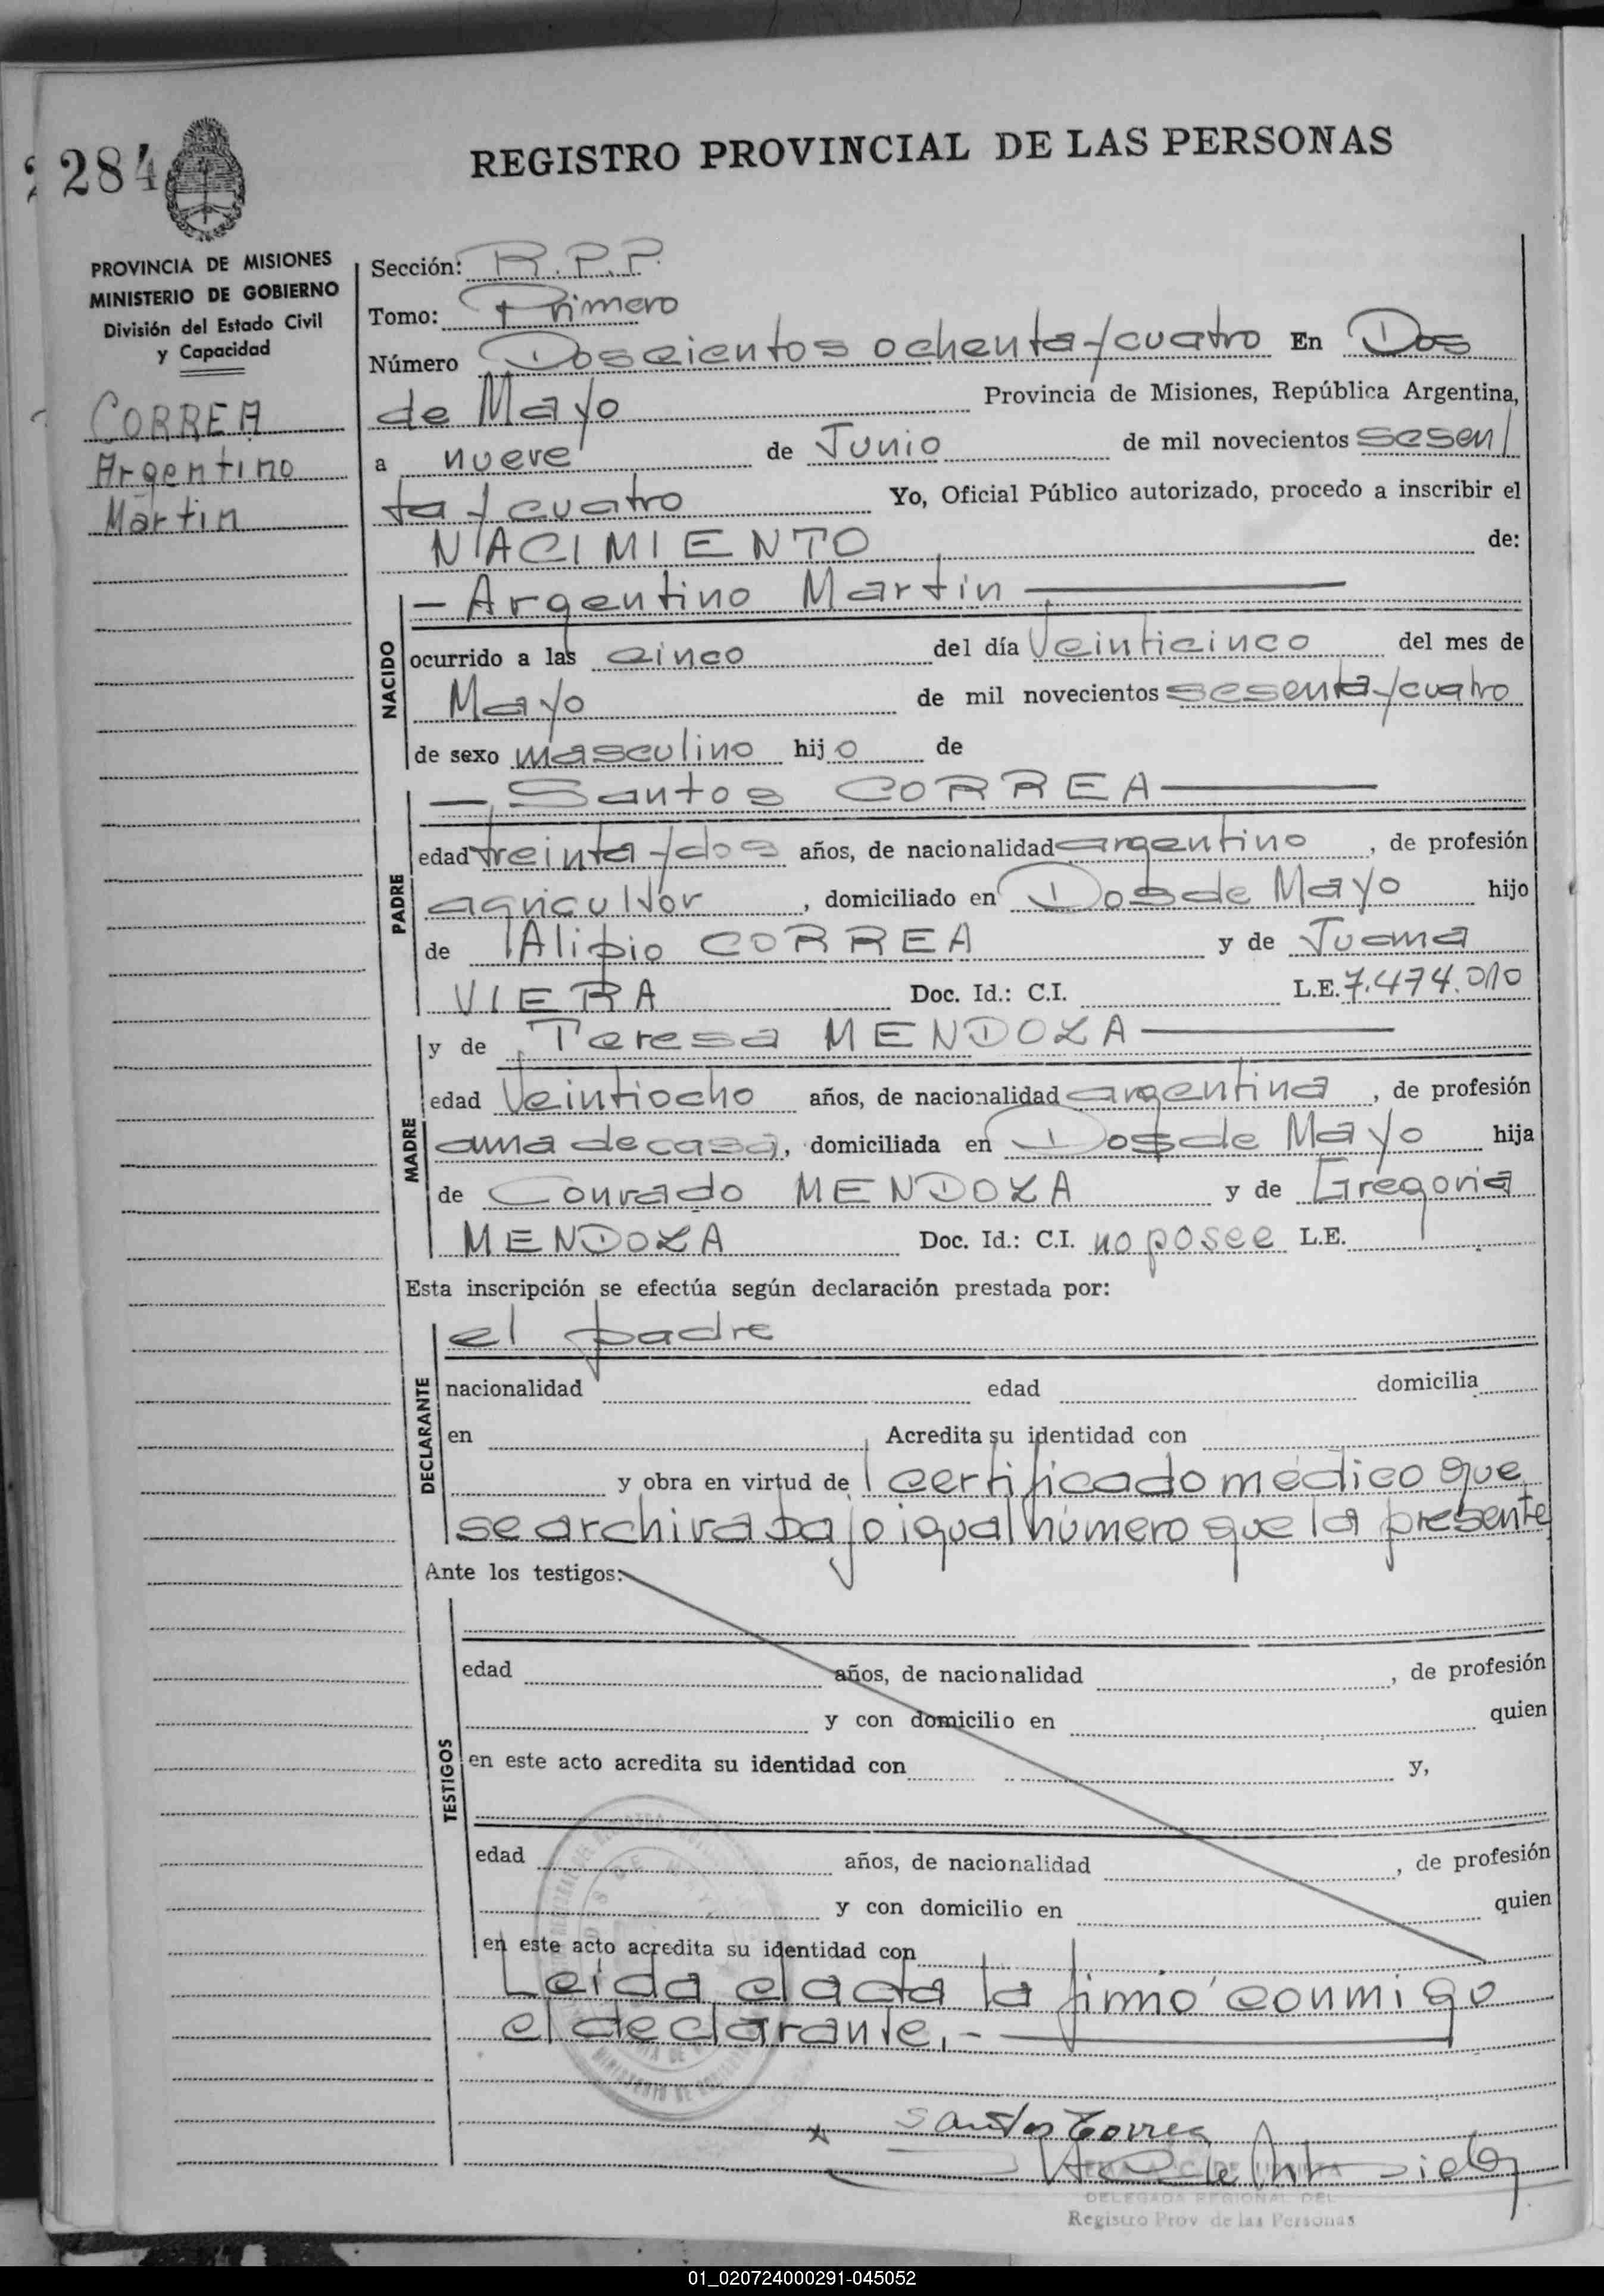 284
REGISTRO PROVINCIAL DE LAS PERSONAS
PROVINCIA DE MISIONES
MINISTERIO DE GOBIERNO
División del Estado Civil
y Capacidad
CORREA
Argentino
Martin
Sección: R.P.P.
Tomo: Primero
Número Doscientos ochenta y cuatro En Dos
de Mayo Provincia de Misiones, República Argentina,
a nueve de Junio de mil novecientos sesen/
ta y cuatro Yo, Oficial Público autorizado, procedo a inscribir el
NACIMIENTO de:
NACIDO
— Argentino Martin —
ocurrido a las cinco del día Veinticinco del mes de
Mayo de mil novecientos sesenta y cuatro
de sexo masculino hijo de
PADRE
— Santos CORREA —
edad treinta y dos años, de nacionalidad argentino, de profesión
agricultor, domiciliado en Dos de Mayo hijo
de Alipio CORREA y de Juana
VIERA Doc. Id.: C.I. L.E. 7.474.010
MADRE
y de Teresa MENDOZA —
edad Veintiocho años, de nacionalidad argentina, de profesión
ama de casa, domiciliada en Dos de Mayo hija
de Conrado MENDOZA y de Gregoria
MENDOZA Doc. Id.: C.I. no posee L.E.
Esta inscripción se efectúa según declaración prestada por:
DECLARANTE
el padre
nacionalidad edad domicilia
en Acredita su identidad con
y obra en virtud de certificado médico que
se archiva bajo igual número que la presente
Ante los testigos:
TESTIGOS
edad años, de nacionalidad , de profesión
y con domicilio en quien
en este acto acredita su identidad con y,
edad años, de nacionalidad , de profesión
y con domicilio en quien
en este acto acredita su identidad con
Leída el acta la firmó conmigo
el declarante.-
Santos Correa
DELEGADA REGIONAL DEL
Registro Prov de las Personas
01_020724000291-045052